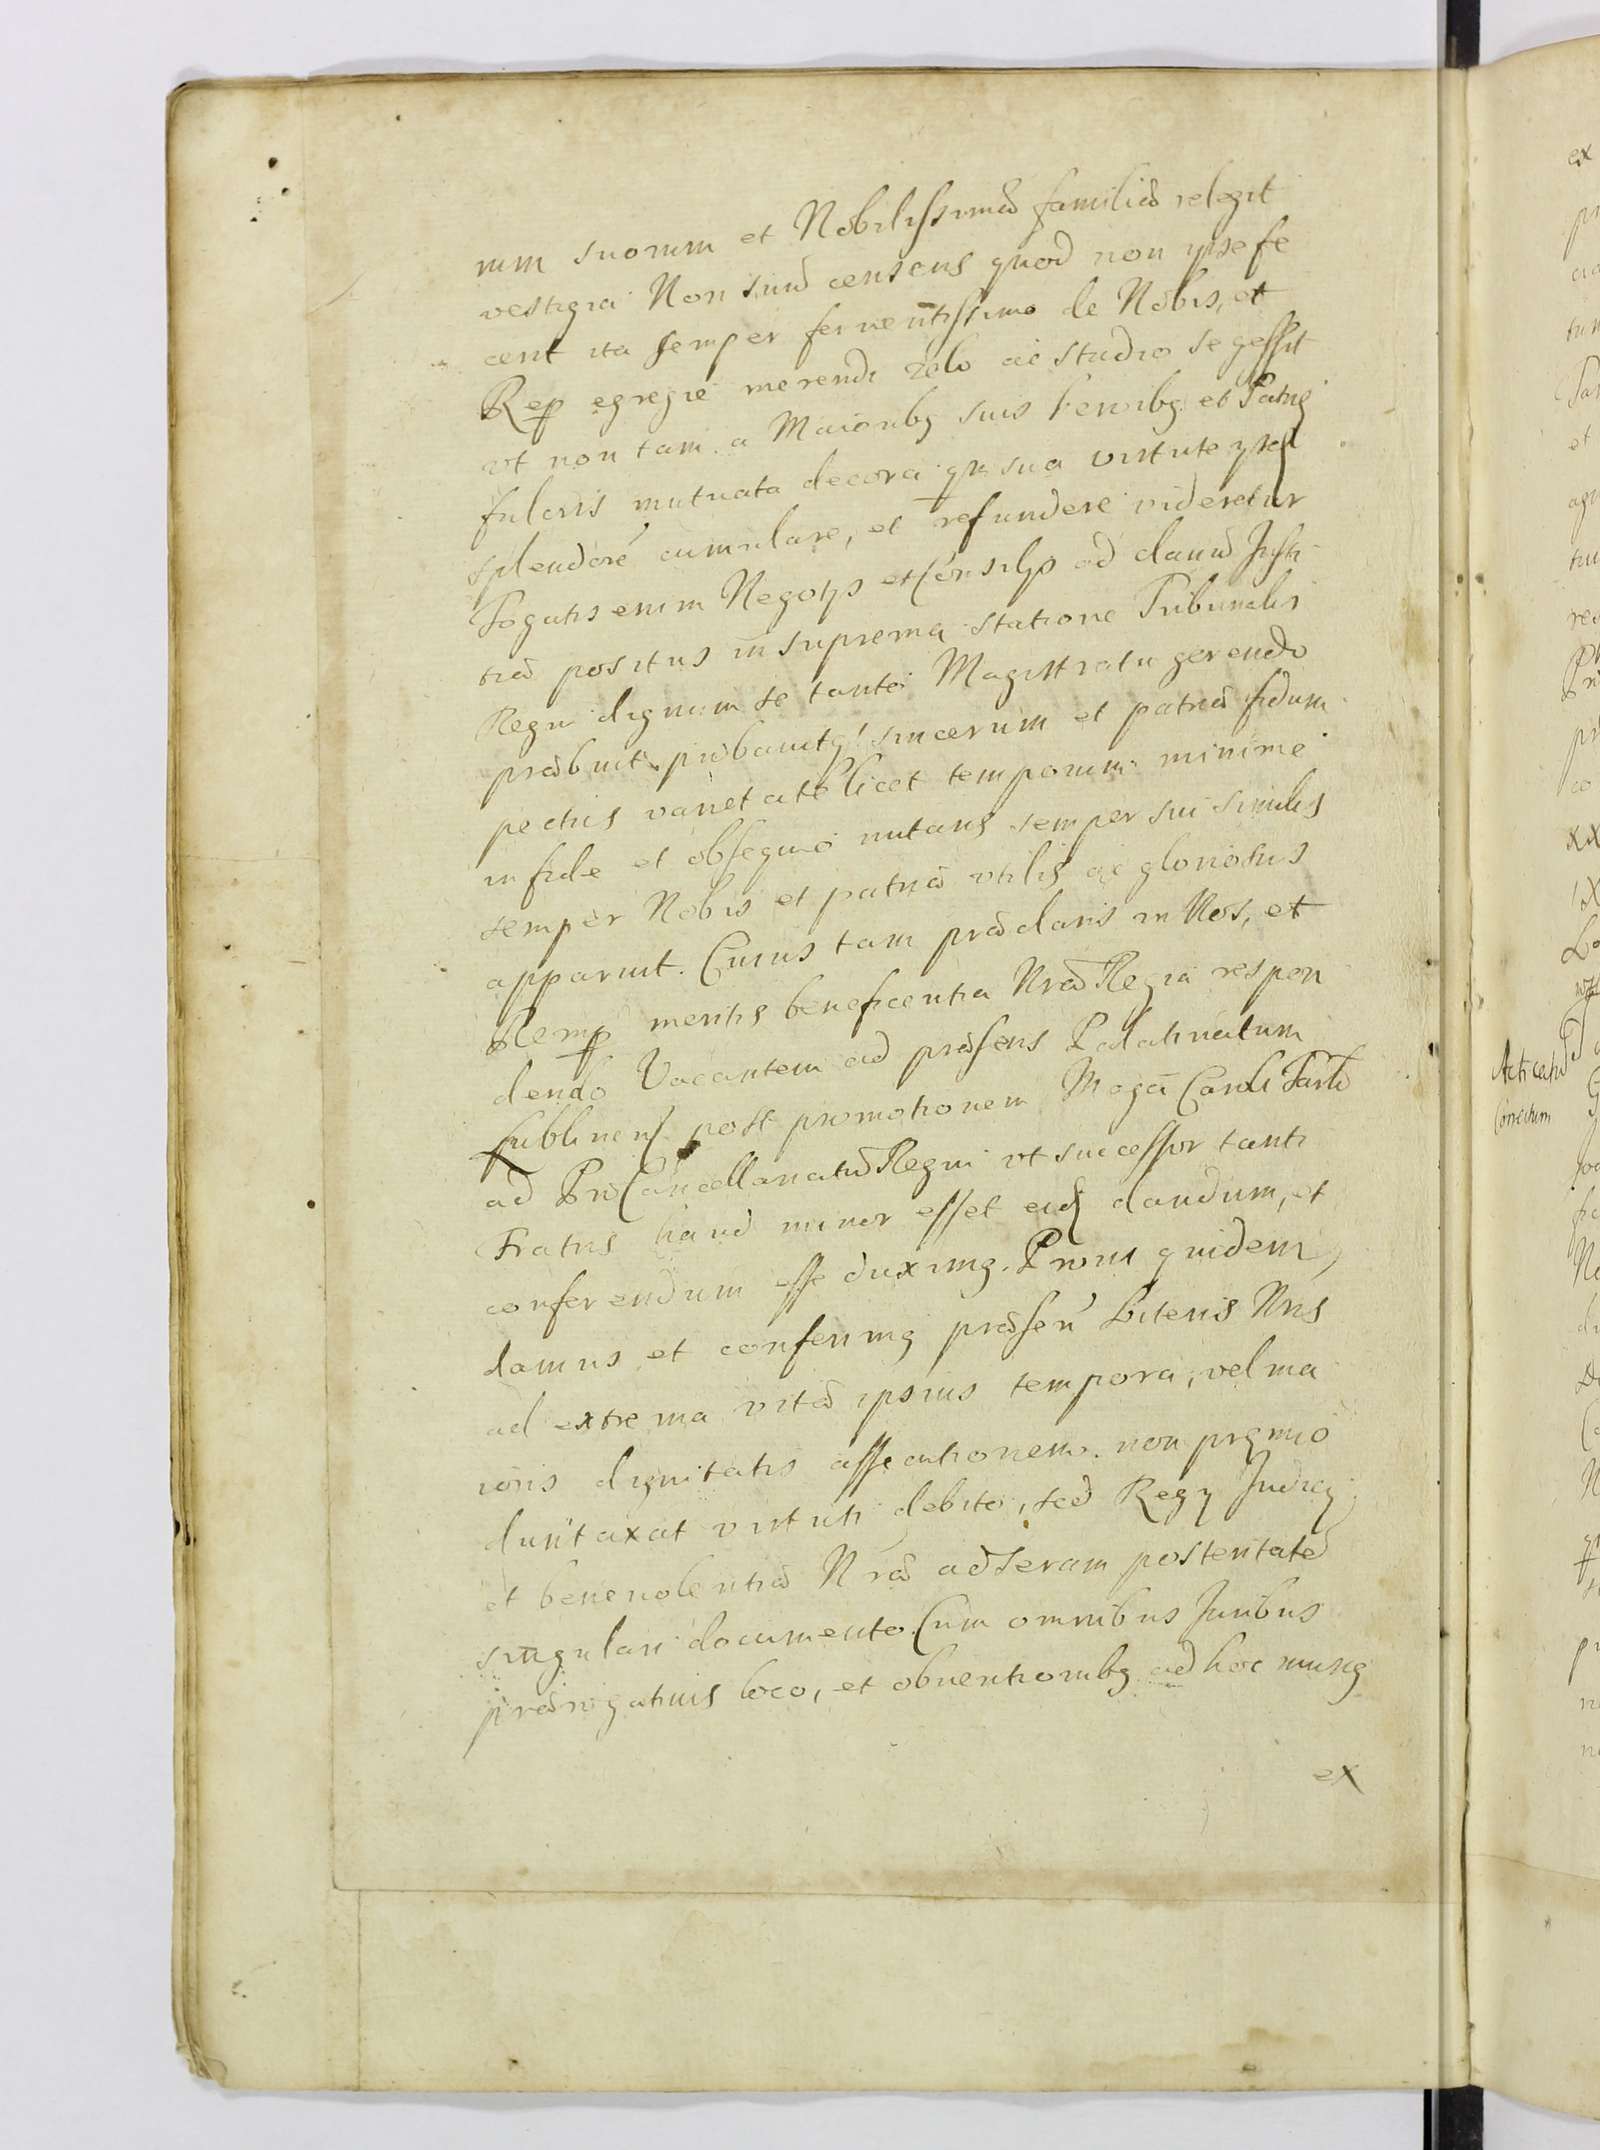 rum suorum et Nobilissimæ familiæ relegit
vestigia Non suū censens quod non ipse fe
cerit ita semper feruentissimo de Nobis, et
Rep egregie merendi zelo ac studio se gessit
vt non tam a Maioribg suis heroibg et Patrię
fulcris mutuata decora qm sua virtute ipse
splendorē cumulare, et refundere videretur
Togatis enim Negotÿs et Consilÿs ad clauū Justi
tiæ positus in suprema statione Tribunalis
Regni dignum se tanto Magistratu gerendo
præbuit, probauitq sincerum et patriæ fidum
pectus varietate licet temporum minime
in fide et obsequio nutans semper sui similis
semper Nobis et patriæ vtilis ac gloriosus
apparuit. Cuius tam præclaris in Nos, et
Remp meritis beneficentia Nra Regia respon
dendo Vacantem ad præsens Palatinatum
Lublinen post promotionem Magci Caroli Tarło
ad ProCancellariatū Regni vt successor tanti
Fratris haud minor esset eid dandum, et
conferendum esse duximg. Prout quidem
damus et conferimg præsen Literis Nris
ad extrema vitæ ipsius tempora, vel ma
ioris dignitatis assecutionem. non pręmio
duntaxat virtuti debito, sed Regÿ Judicÿ
et beneuolentiæ Nræ ad seram posteritatē
singulari documento. Cum omnibus Juribus
prærogatiuis loco, et obuentionibg ad hoc munę
ex
Acticatū
Correctum